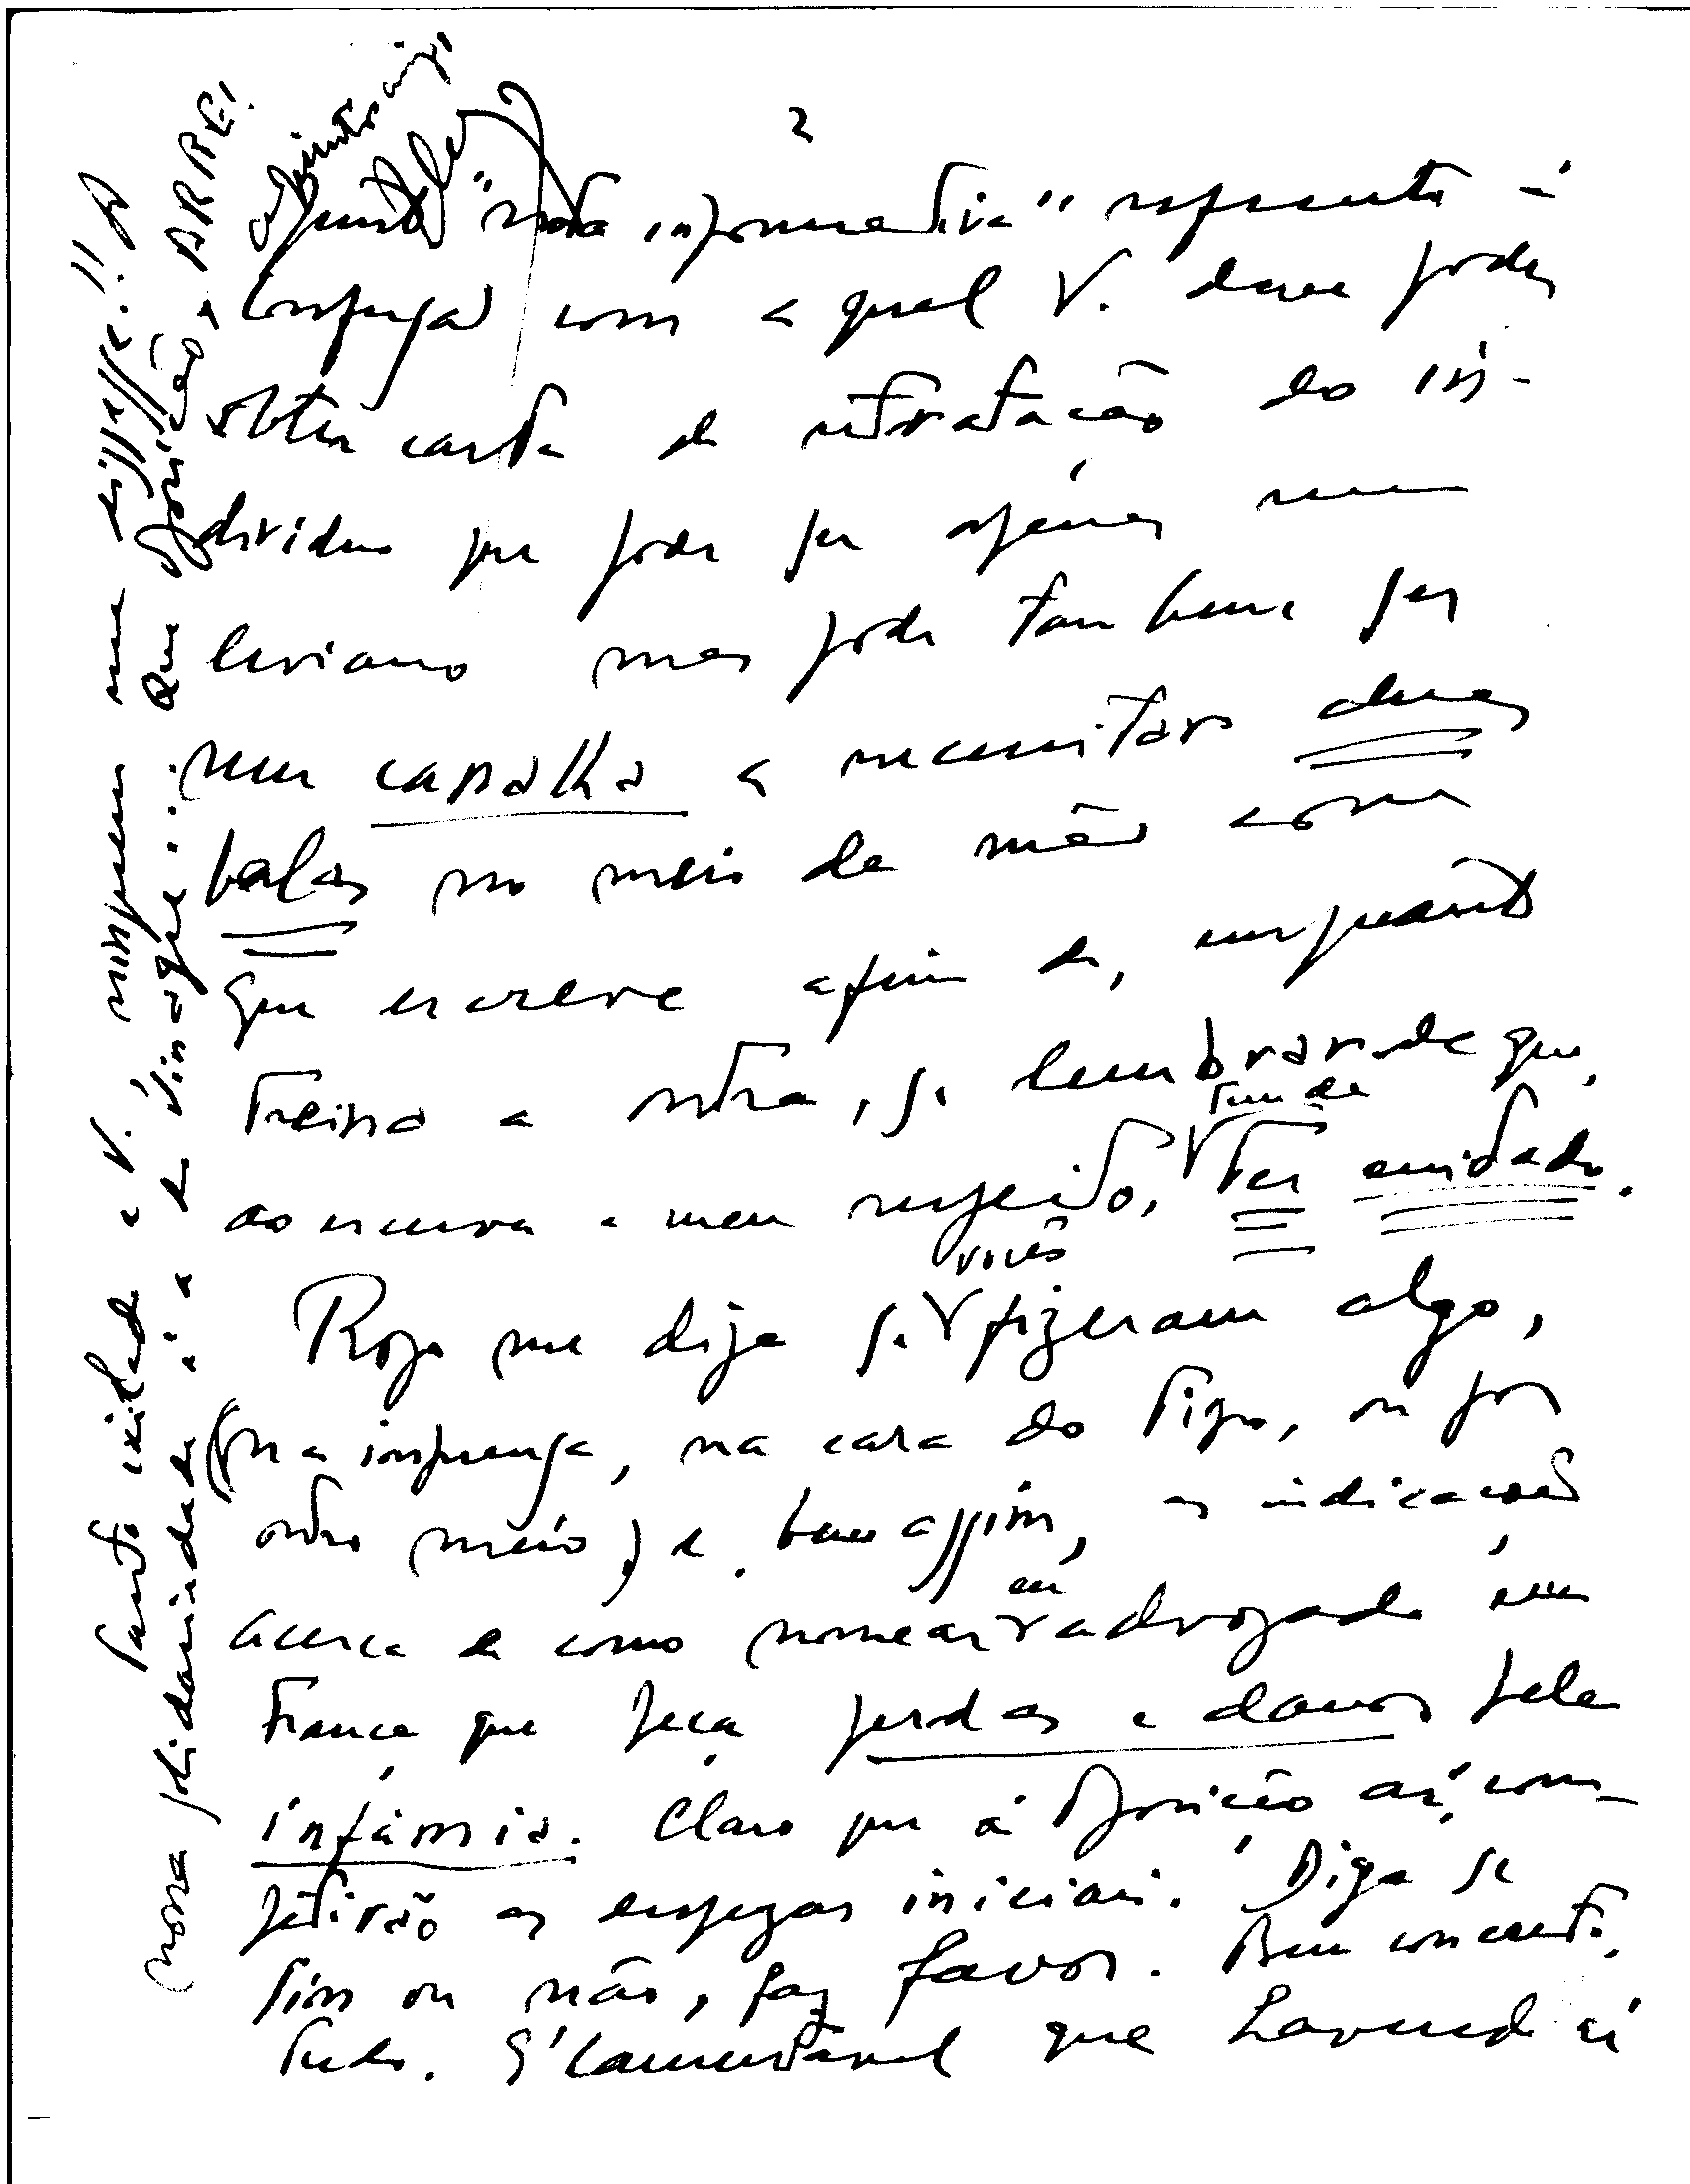 2
Junto "nota informativa" referente à
com a qual V. deve poder
obter carta de retratação do in-
dividuo que pode ser apenas um
leviano mas pode tambem ser
um canalha a necessitar duas
balas no meio da mão com
que escreve afim de, enquanto
treina a outra, se lembrar de que,
ao escrever a meu respeito, tem de ter cuidado.
Rogo me diga se vocês fizeram algo,
(na imprensa, na cara do tipo, ou por
outro meio) e, bem assim, as indicações
acerca de como nomear eu advogado em
França que peça perdas e danos pela
infâmia. Claro que á Oposição aí, com-
petirão as despezas iniciais. Diga se
sim ou não, faz favor. Bem concreto,
tudo. É lamentavel que havendo aí
tanto exilado e V. ninguem me dissesse!! A
nossa solidariedade é a de vinagre... Que Oposição, ARRE!